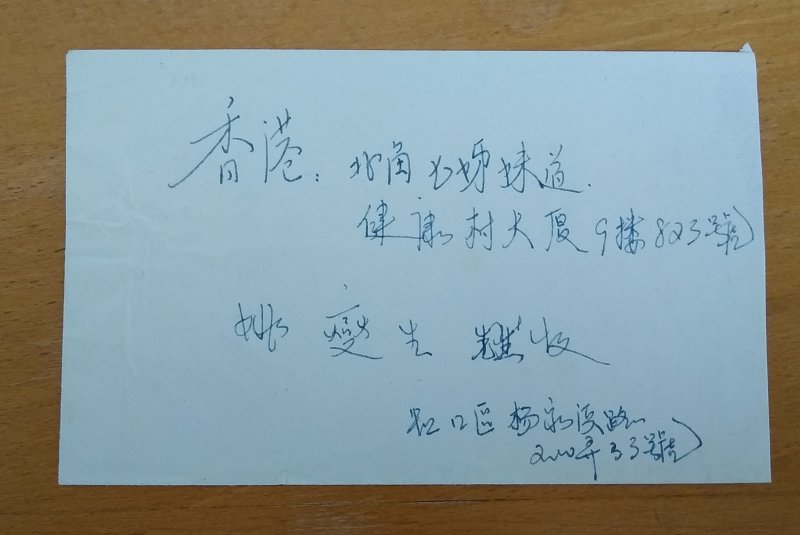 香港：北角七姊妹道
健康村大厦9楼823號
姚燮生 收
虹口區杨家浜路
200弄33號